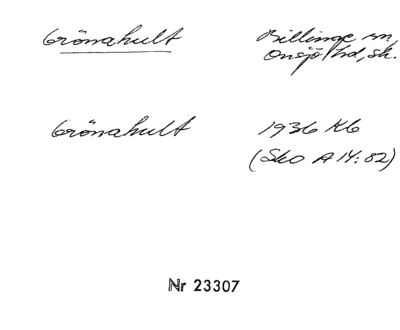 Grönahult
Billinge sn,
Onsjö hd, Sk.
Grönahult
1936 KG
(Sko A 14:82)
Nr 23307